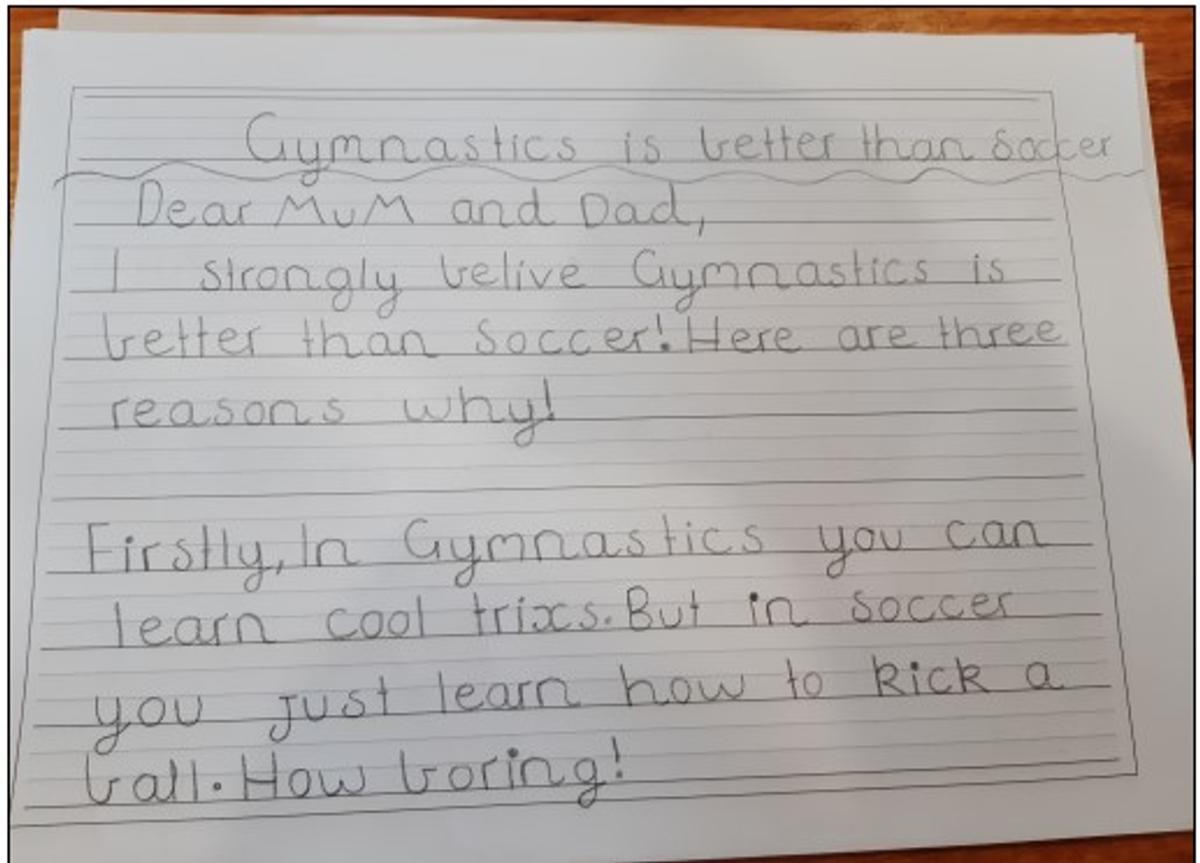 Gymnastics is better than Soccer
Dear Mum and Dad,
I strongly belive Gymnastics is
better than Soccer! Here are three
reasons why!
Firstly, In Gymnastics you can
learn cool trixs. But in soccer
you just learn how to kick a
ball. How boring!